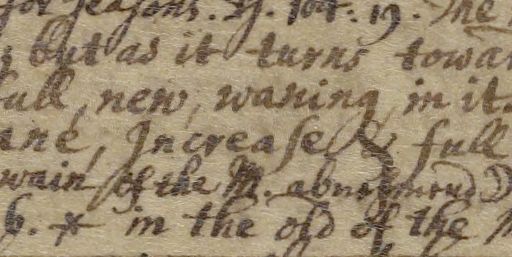 for seasons. Ps. 104: 19. The
but as it turns towar
full, new, waning, in it.
ane, Increase & full
wain of the M.
h. * in the old of the M